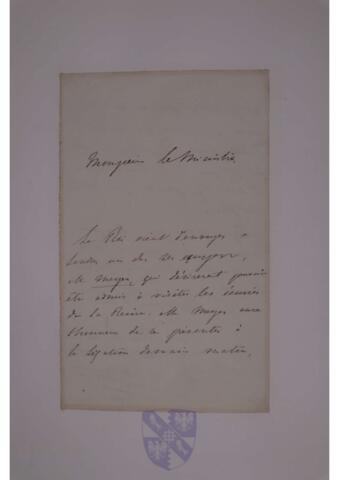 Monsieur le Ministre
Le Roi vient d'envoyer à
Londres un de ses
M. Meyer, qui désirerait pouvoir
être admis à visiter les écuries
de la Reine. M. Meyer aura
l'honneur de se présenter à
la légation demain matin.